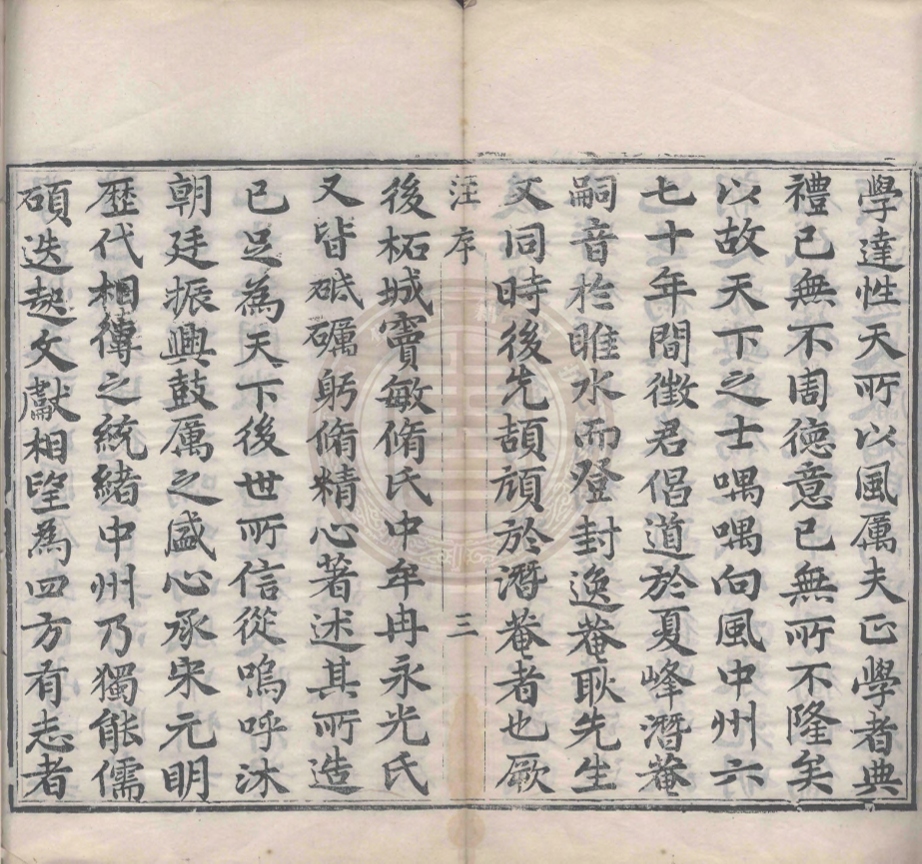 學達性天所以風厲夫正學者典
禮已無不周德意已無所不隆矣
以故天下之士喁喁向風中州六
七十年間徵君倡道於夏峰潛菴
嗣音於睢水而登封逸菴耿先生
文同時後先頡頏於潛菴者也厥
汪序 三
後柘城竇敏脩氏中牟冉永光氏
又皆砥礪躬脩精心著述其所造
已足為天下後世所信從嗚呼沐
朝廷振興鼓厲之盛心承宋元明
歷代相傳之統緒中州乃獨能儒
碩迭起文獻相望為四方有志者